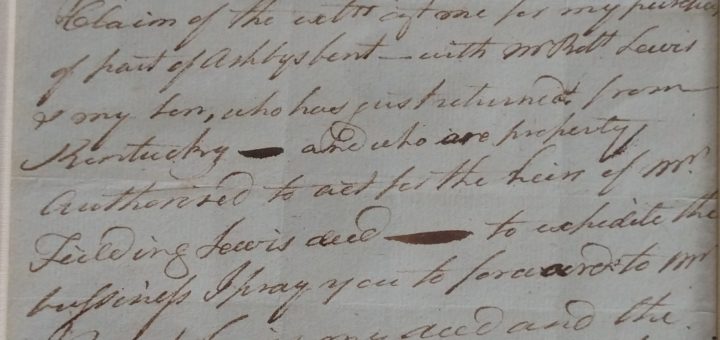 Claim of the extrs agt me for my purchase
of part of Ashbysbent — with Mr Robt Lewis
& my son, who has just returned from
Kentucky — and who are property
Authorised to act for the heirs of Mr
Fielding Lewis decd — to expidite the
bussiness I pray you to forward to Mr
my deed and the